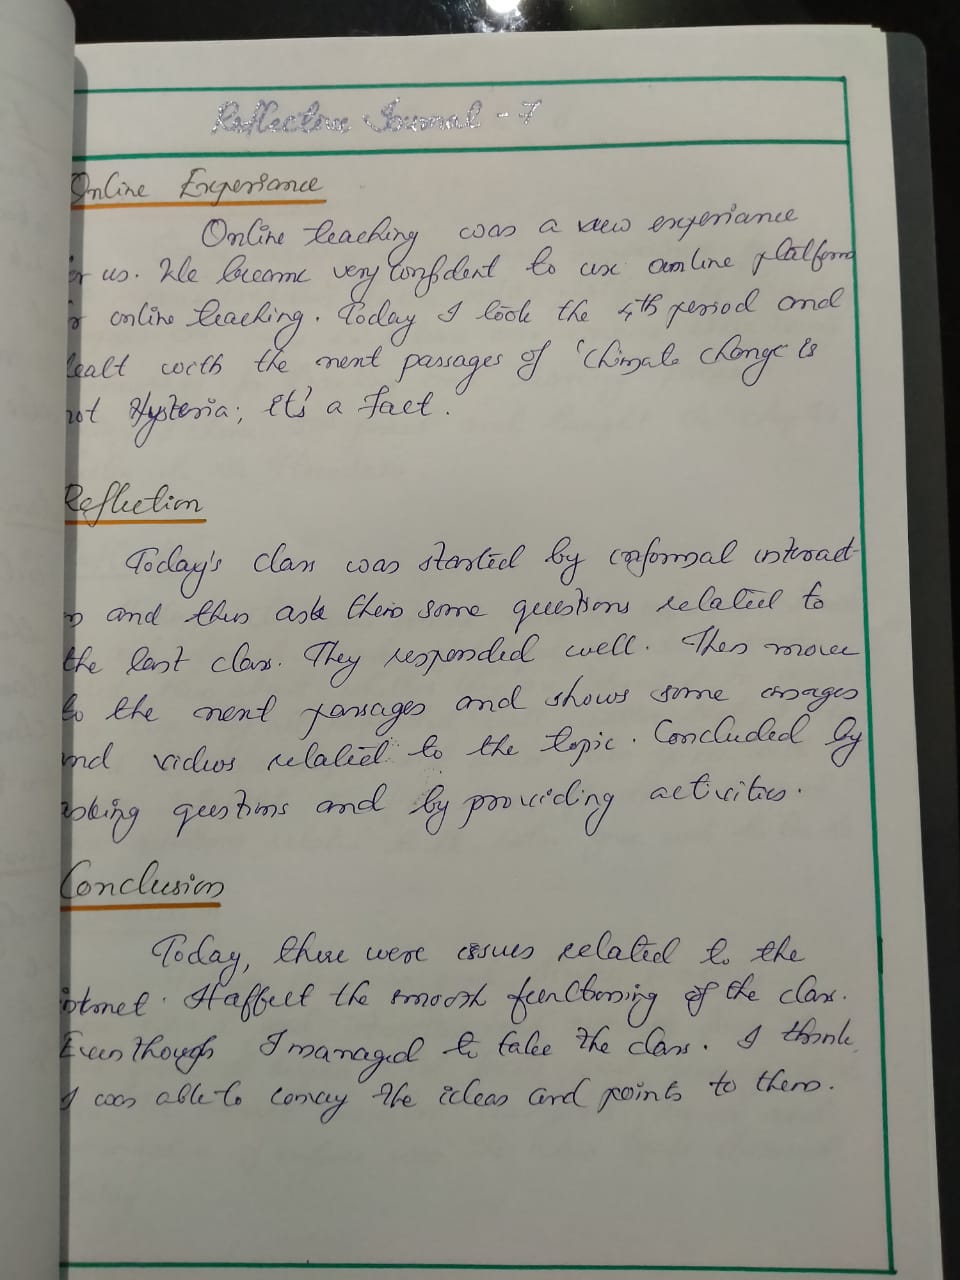 Reflective Journal - 7
Online Experiance
Online teaching was a new experiance
for us. We became very confident to use online platform
for online teaching. Today I took the 4th period and
dealt with the next passages of 'Climate change is
not Hysteria; it's a fact.
Reflection
Today's class was started by informal interact-
ion and then ask them some questions related to
the last class. They responded well. Then move
to the next passages and shows some images
and videos related to the topic. Concluded by
asking questions and by providing activities.
Conclusion
Today, there were issues related to the
internet. It affect the smooth functioning of the class.
Even though I managed to take the class. I think
I was able to convey the ideas and points to them.